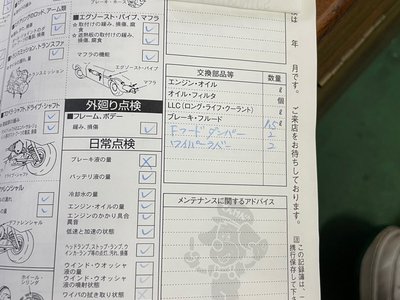 ブレーキ・ホース
ロッド、アーム類
☆取付けの緩み、損傷、腐食
☆遮熱板の取付けの緩み、損傷、腐食
マフラの機能
エグゾースト・パイプ
マフラ
トランスミッション
外廻り点検
フレーム、ボデー
緩み、損傷
日常点検
ブレーキ液の量
バッテリ液の量
冷却水の量
エンジン・オイルの量
エンジンのかかり具合
異音
低速と加速の状態
ヘッドランプ、ストップ・ランプ、ウインカ・ランプ等の点灯、汚れ、損傷
ウインド・ウオッシャ液の量
ウインド・ウオッシャ液の噴射状態
ワイパの拭き取り状態
ホイール・シリンダ
交換部品等
数量
エンジン・オイル
ℓ
オイル・フィルタ
個
LLC(ロング・ライフ・クーラント)
ℓ
ブレーキ・フルード
1.5 ℓ
Fフードダンパー
2
ワイパーラバー
2
メンテナンスに関するアドバイス
は 年 月です。ご来店をお待ちしております。
この記録簿は、
携行保存して下